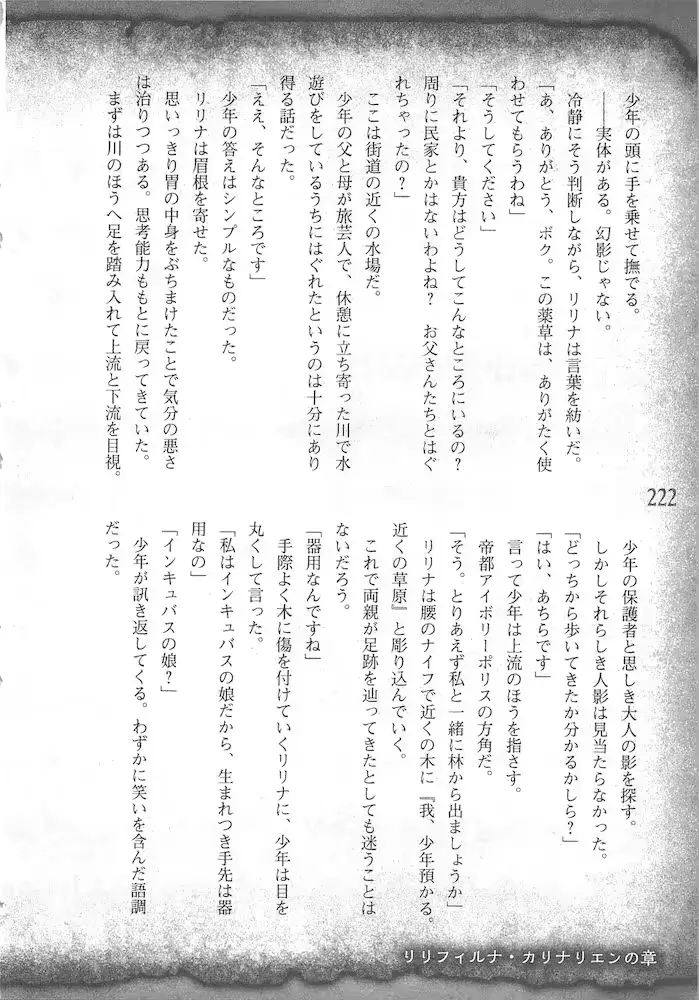 少年の頭に手を乗せて撫でる。
――実体がある。幻影じゃない。
冷静にそう判断しながら、リリナは言葉を紡いだ。
「あ、ありがとう、ボク。この薬草は、ありがたく使
わせてもらうわね」
「そうしてください」
「それより、貴方はどうしてこんなところにいるの？
周りに民家とかはないわよね？　お父さんたちとはぐ
れちゃったの？」
ここは街道の近くの水場だ。
少年の父と母が旅芸人で、休憩に立ち寄った川で水
遊びをしているうちにはぐれたというのは十分にあり
得る話だった。
「ええ、そんなところです」
少年の答えはシンプルなものだった。
リリナは眉根を寄せた。
思いっきり胃の中身をぶちまけたことで気分の悪さ
は治りつつある。思考能力ももとに戻ってきていた。
まずは川のほうへ足を踏み入れて上流と下流を目視。
少年の保護者と思しき大人の影を探す。
しかしそれらしき人影は見当たらなかった。
「どっちから歩いてきたか分かるかしら？」
「はい、あちらです」
言って少年は上流のほうを指さす。
帝都アイボリーポリスの方角だ。
「そう。とりあえず私と一緒に林から出ましょうか」
リリナは腰のナイフで近くの木に『我、少年預かる。
近くの草原』と彫り込んでいく。
これで両親が足跡を辿ってきたとしても迷うことは
ないだろう。
「器用なんですね」
手際よく木に傷を付けていくリリナに、少年は目を
丸くして言った。
「私はインキュバスの娘だから、生まれつき手先は器
用なの」
「インキュバスの娘？」
少年が訊き返してくる。わずかに笑いを含んだ語調
だった。
222
リリフィルナ・カリナリエンの章